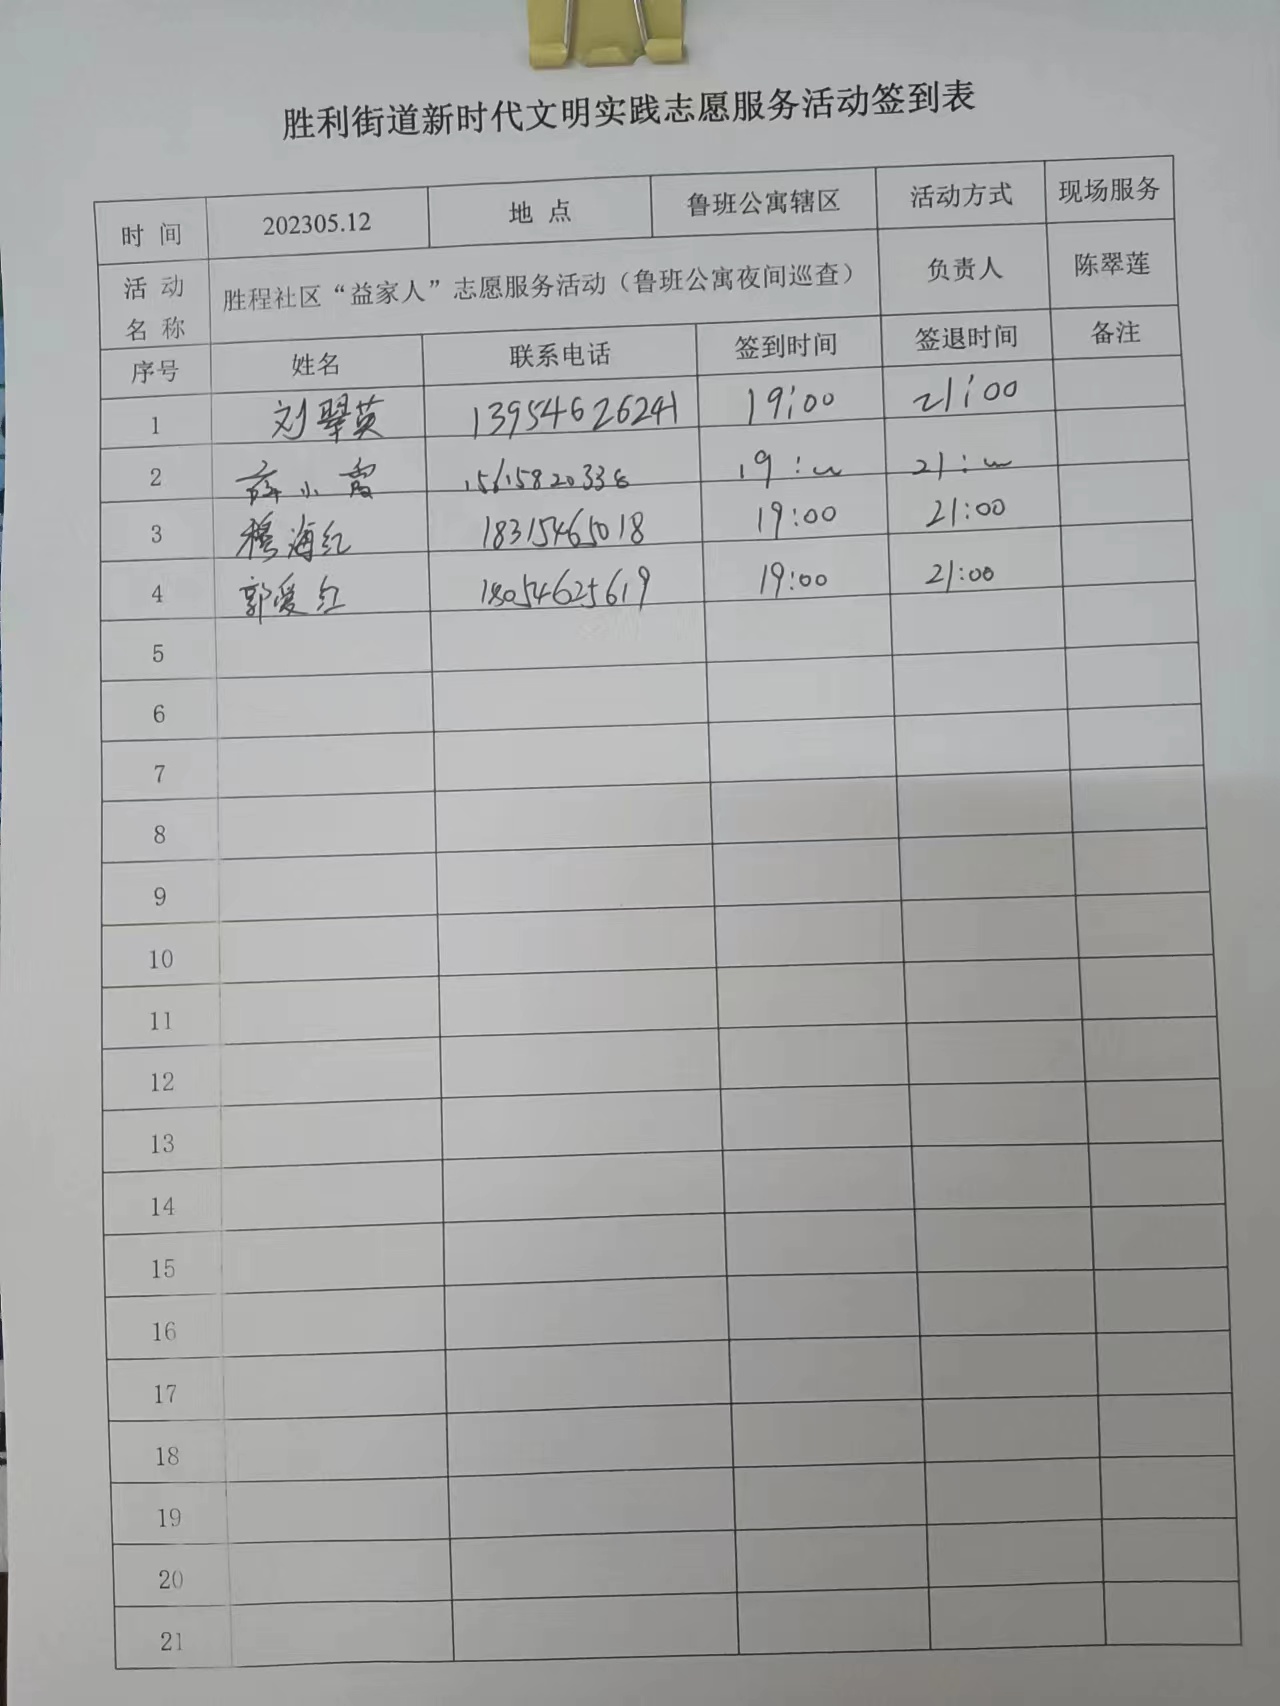 胜利街道新时代文明实践志愿服务活动签到表
时 间 202305.12 地 点 鲁班公寓辖区 活动方式 现场服务
活 动 名 称 胜程社区“益家人”志愿服务活动（鲁班公寓夜间巡查） 负责人 陈翠莲
序号 姓名 联系电话 签到时间 签退时间 备注
1 刘翠英 13954626241 19:00 21:00
2 薛小霞 15615820338 19:00 21:00
3 穆海红 18315465018 19:00 21:00
4 郭爱红 18054625619 19:00 21:00
5
6
7
8
9
10
11
12
13
14
15
16
17
18
19
20
21